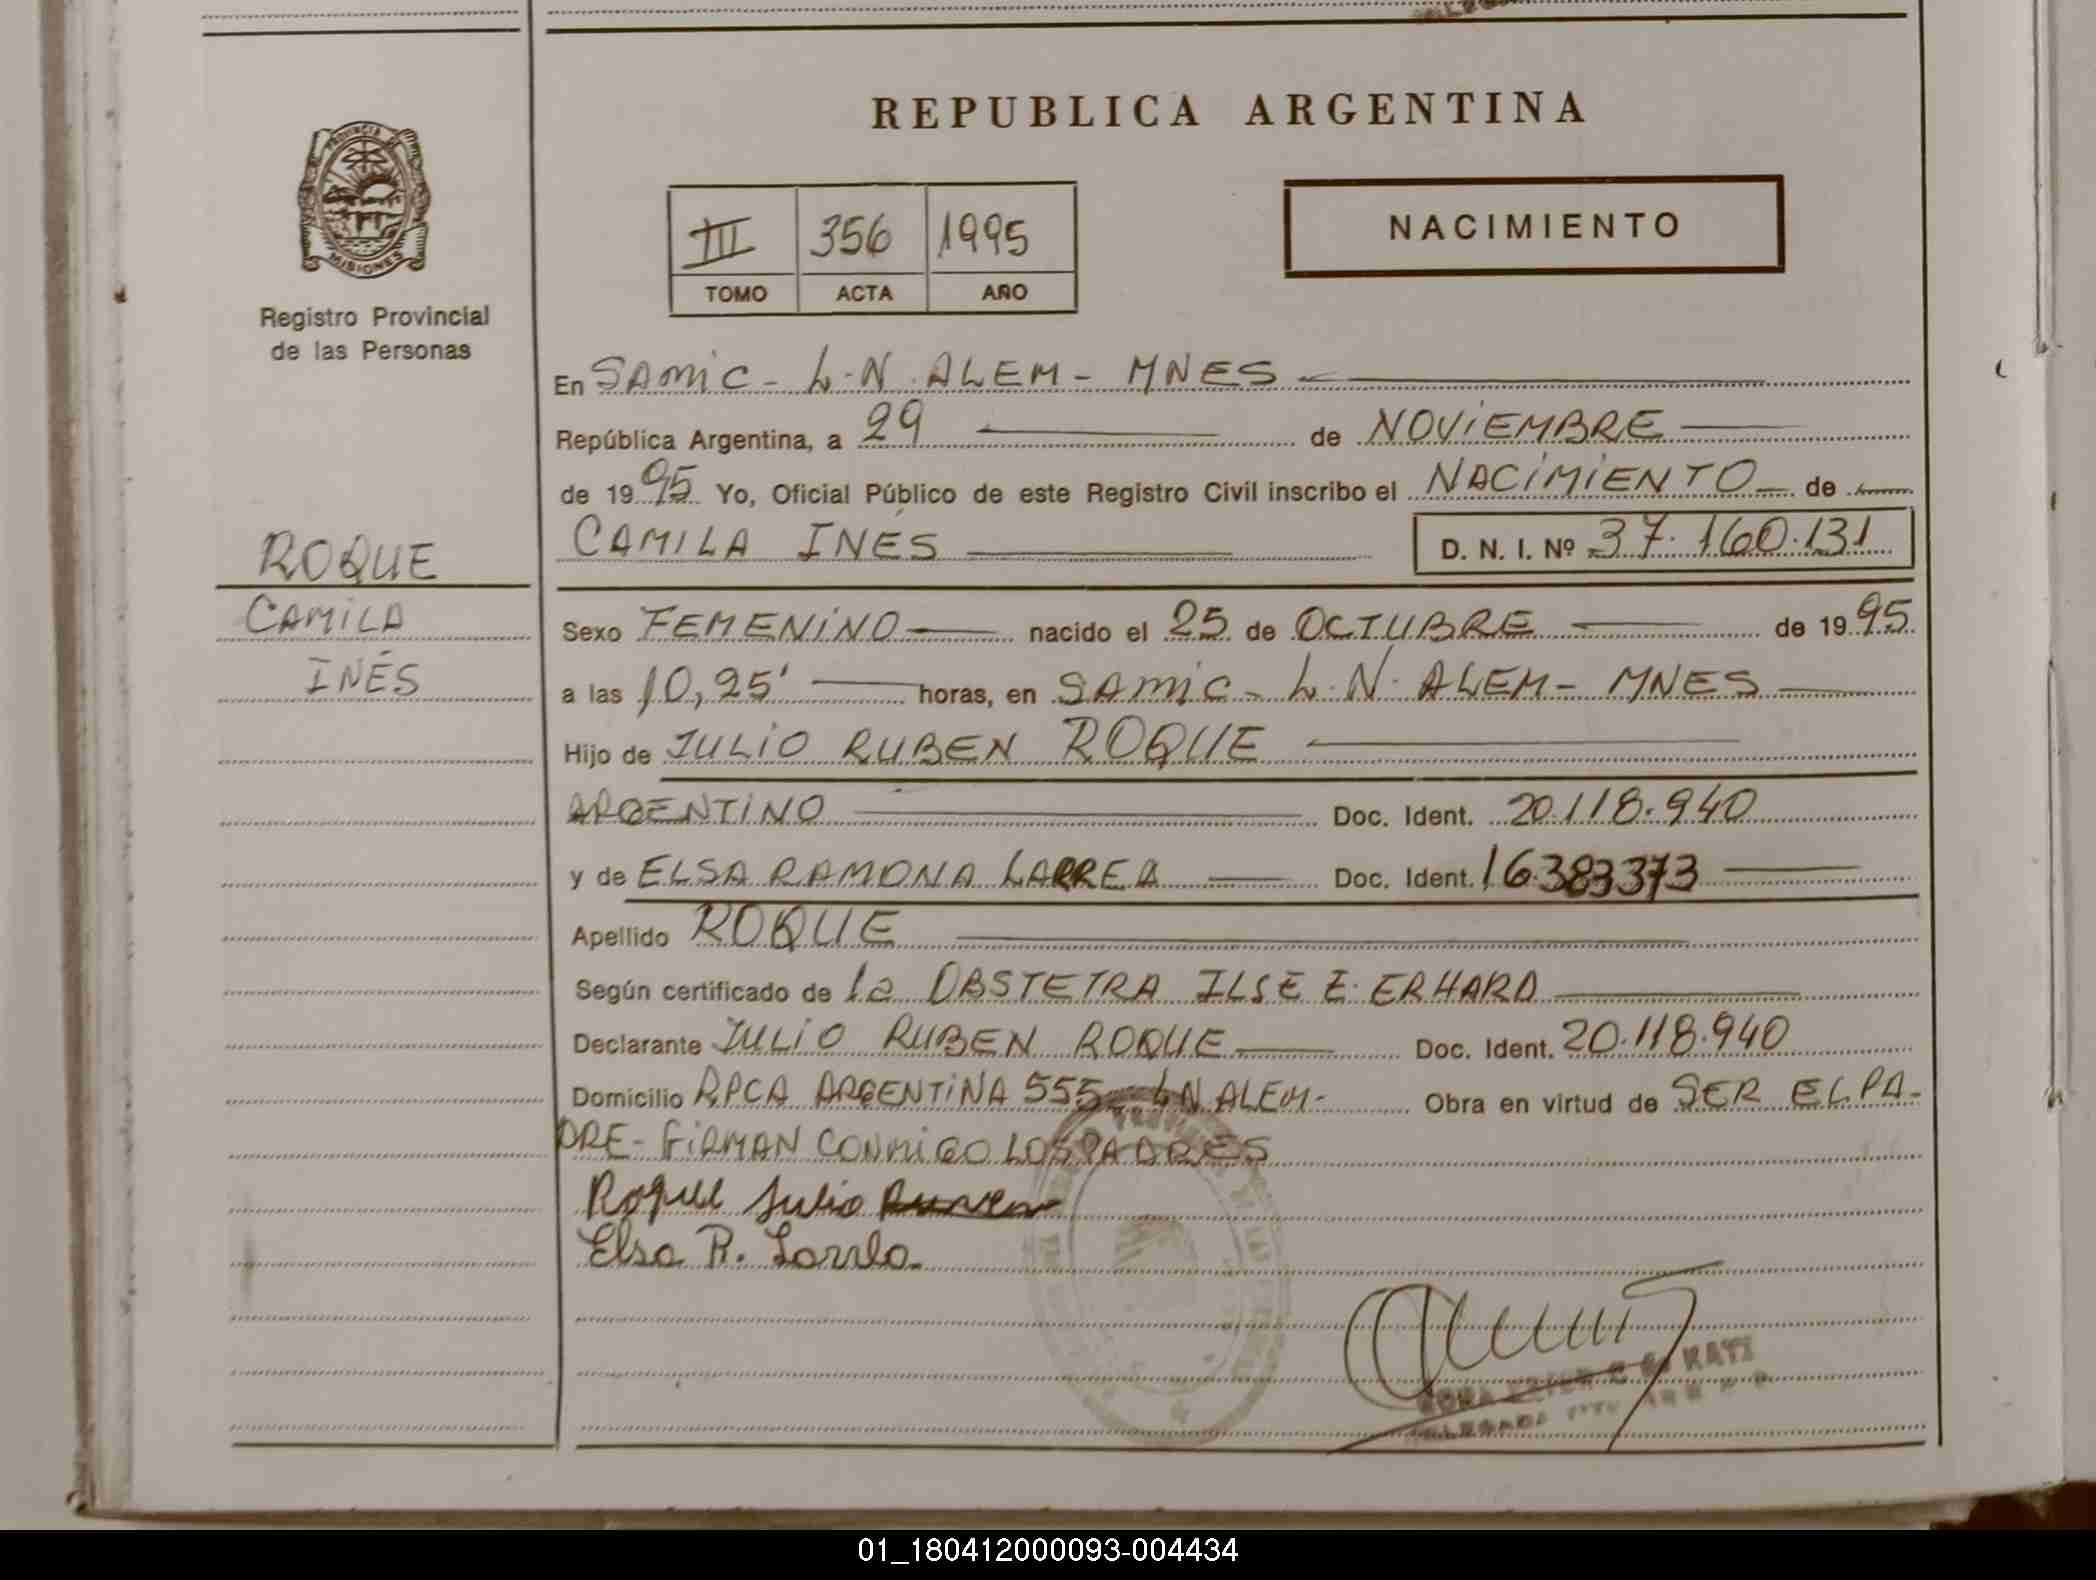 REPUBLICA ARGENTINA
PROVINCIA DE
MISIONES
Registro Provincial
de las Personas
III 356 1995
TOMO ACTA AÑO
NACIMIENTO
En SAMIC - L.N. ALEM - MNES
República Argentina, a 29 de NOVIEMBRE
de 1995 Yo, Oficial Público de este Registro Civil inscribo el NACIMIENTO de
CAMILA INÉS D. N. I. Nº 37.160.131
ROQUE
CAMILA
INÉS
Sexo FEMENINO nacido el 25 de OCTUBRE de 1995
a las 10,25' horas, en SAMIC - L.N. ALEM - MNES
Hijo de JULIO RUBEN ROQUE
ARGENTINO Doc. Ident. 20.118.940
y de ELSA RAMONA LARREA Doc. Ident. 16.383373
Apellido ROQUE
Según certificado de la OBSTETRA ILSE E. ERHARD
Declarante JULIO RUBEN ROQUE Doc. Ident. 20.118.940
Domicilio RPCA ARGENTINA 555 - LN ALEM - Obra en virtud de SER EL PA-
DRE - FIRMAN CONMIGO LOS PADRES
Roque Julio Ruben
Elsa R. Larrea
01_180412000093-004434